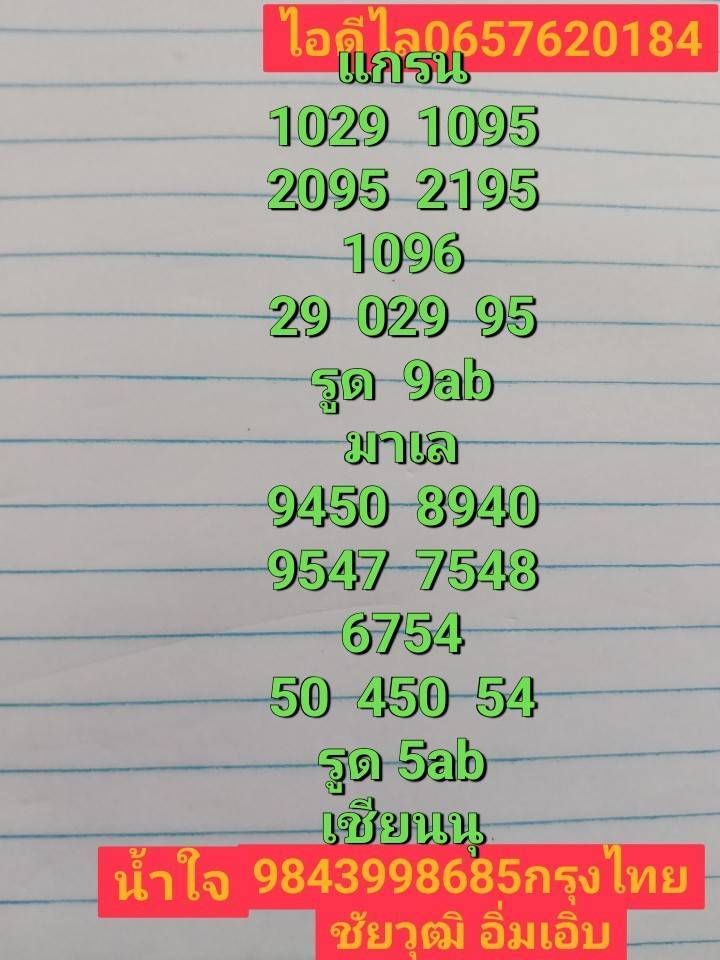 ไอดีไล0657620184
แกรน
1029 1095
2095 2195
1096
29 029 95
รูด 9ab
มาเล
9450 8940
9547 7548
6754
50 450 54
รูด 5ab
เซียนนุ
น้ำใจ 9843998685กรุงไทย
ชัยวุฒิ อิ่มเอิบ